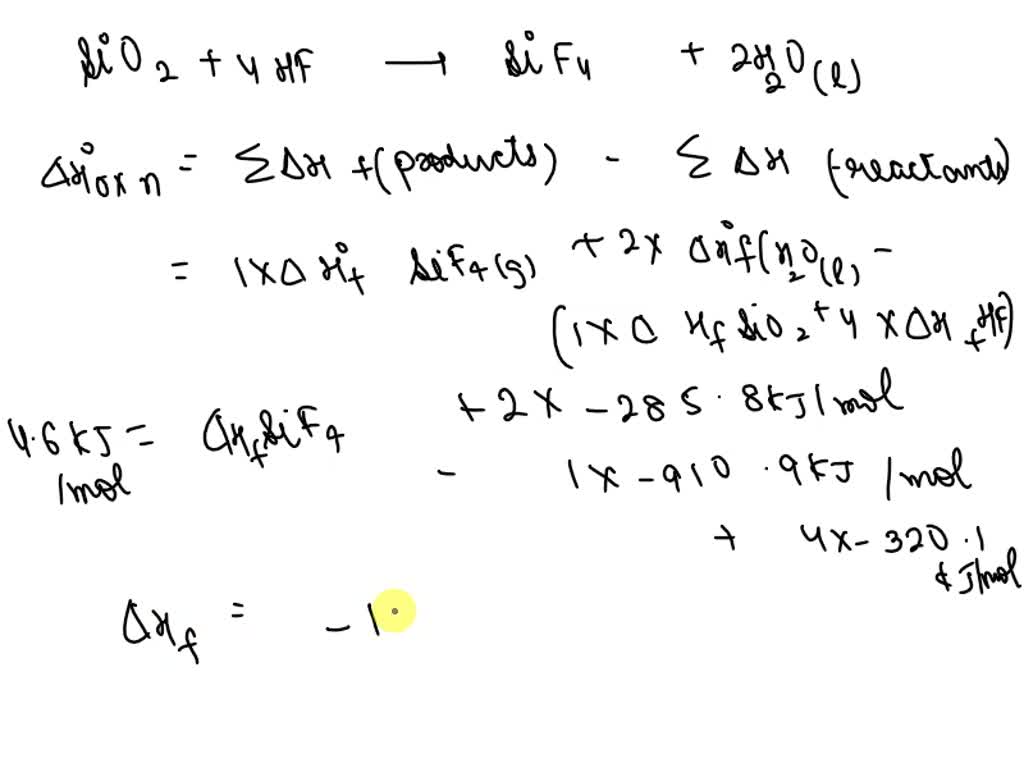 SiO2 + 4HF → SiF4 + 2H2O(l)
ΔH°rxn = ΣΔHf(products) - ΣΔH (reactants)
= 1×ΔH°f SiF4(g) + 2× ΔH°f(H2O(l) -
(1×ΔHf SiO2 + 4×ΔHf HF)
4.6 kJ/mol = ΔHf SiF4 + 2× -285.8kJ/mol
- 1× -910.9kJ/mol
+ 4× -320.1 kJ/mol
ΔHf = -1